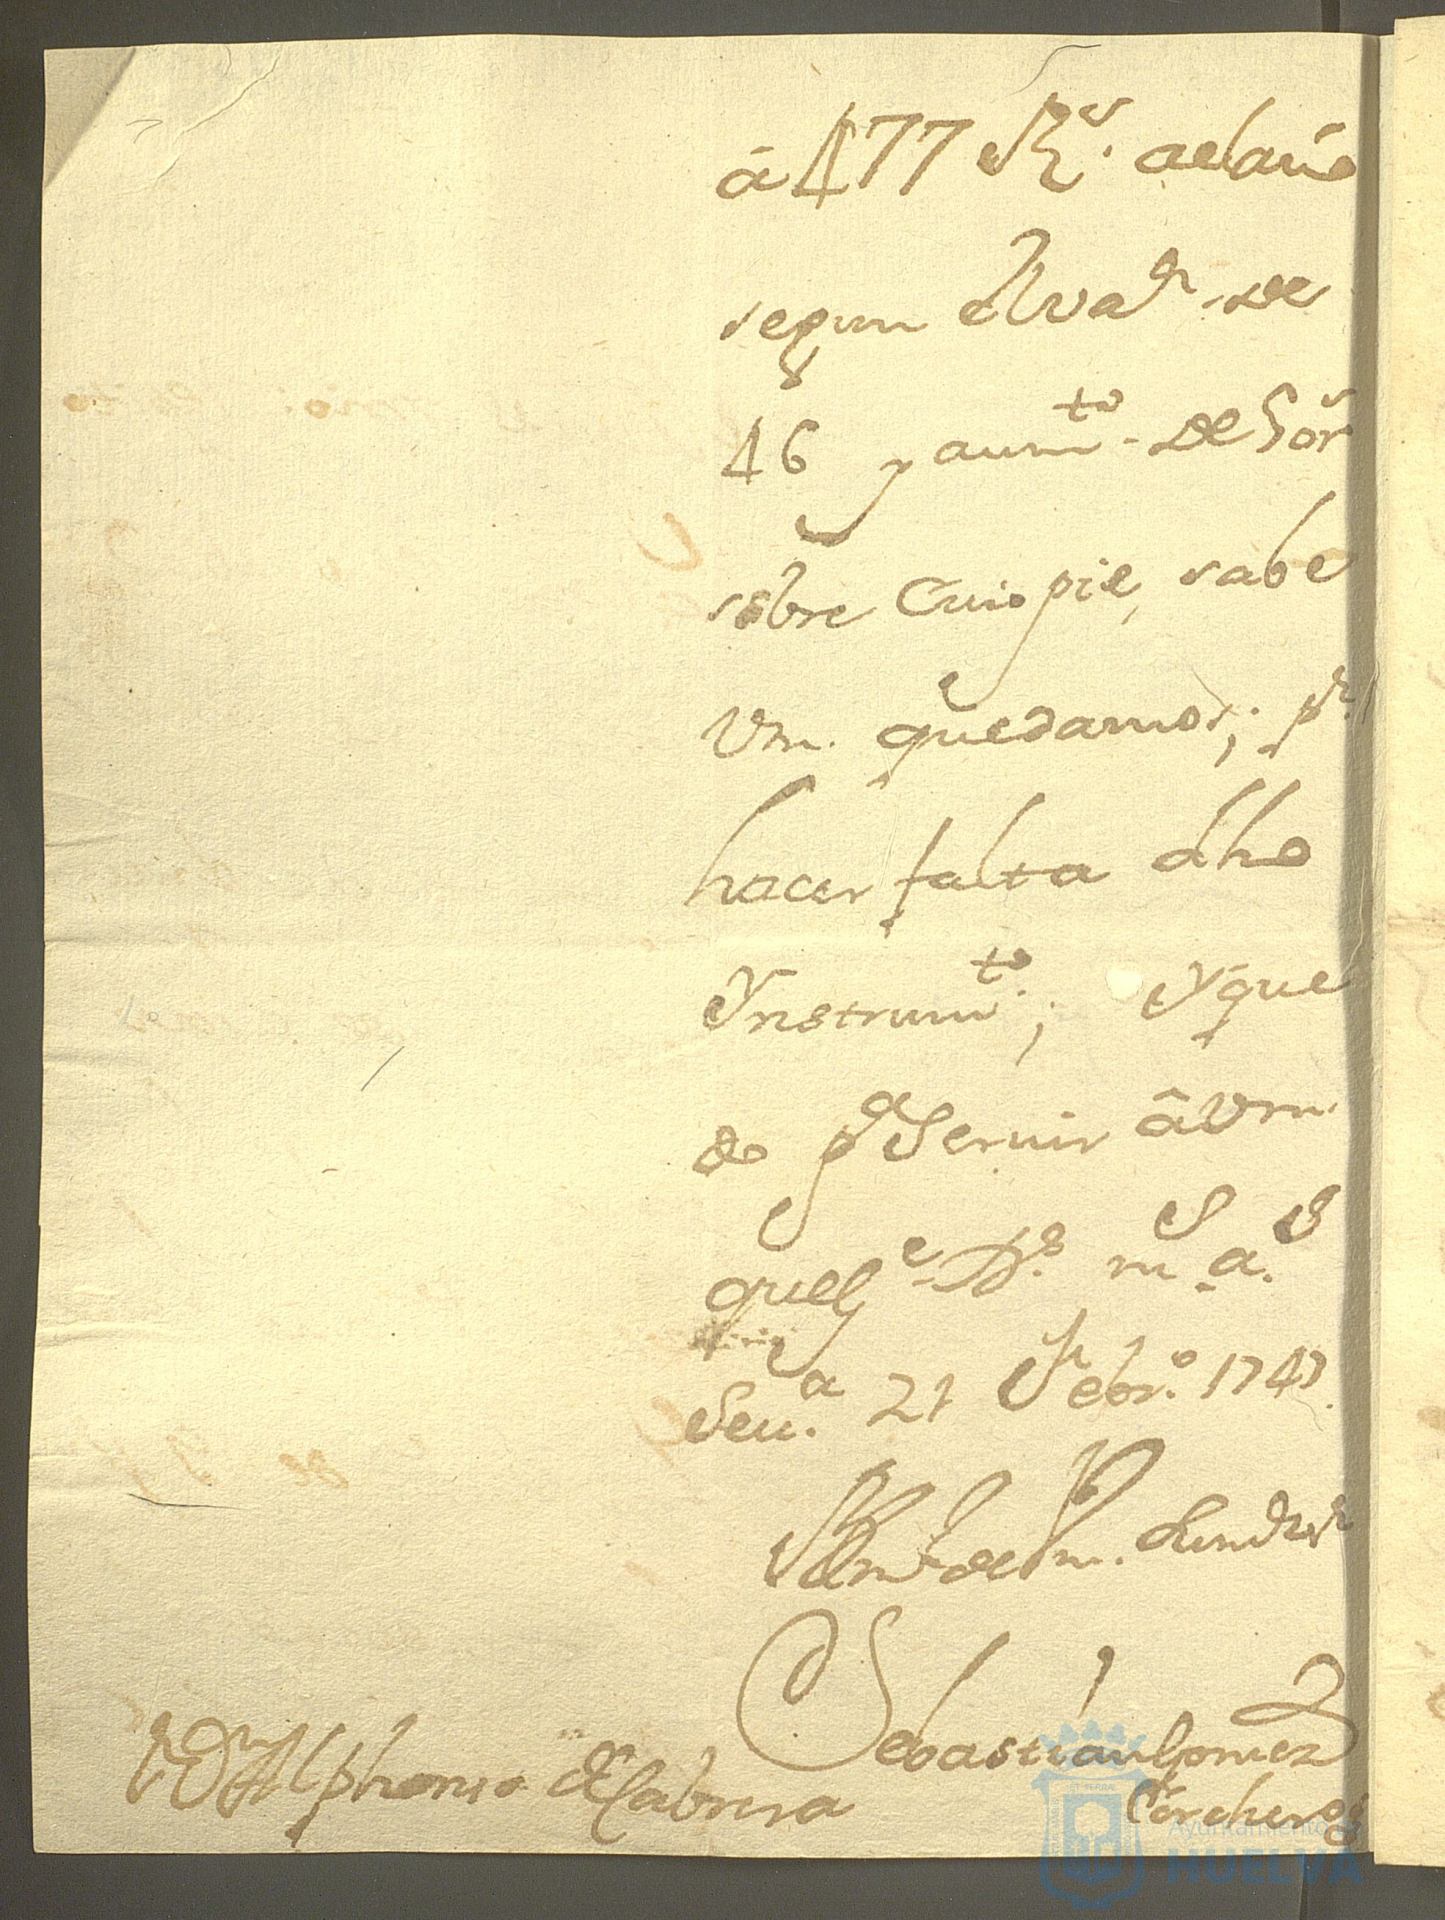 â 477 Rˢ. al año
segun el vaˡʳ de
46 y aumᵗᵒ. de Sôr
sôbre Cuio pie, sabe
Vm. quedamos; pʳ.
hacer falta dho
Ynstrumᵗᵒ.; Y que
do pᵃ Servir â Vm.
que gᵉ. Dˢ. m aˢ.
Sevᵃ. 21 Febrᵒ. 1747
Blm de Vm.
Sebastian Gomez
Torcheros
Sʳ Dⁿ Alphonso de Cabrera
Ayuntamiento
HUELVA